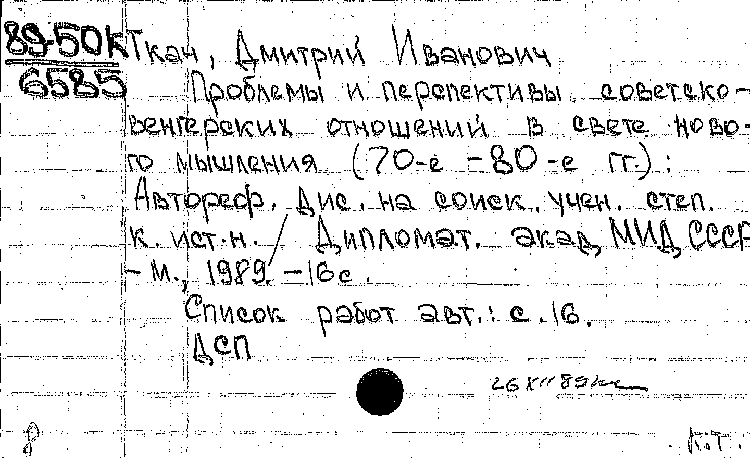 89-50к
6585
Ткач, Дмитрий Иванович
Проблемы и перспективы советско-
венгерских отношений в свете ново-
го мышления (70-е - 80-е гг.):
Автореф. дис. на соиск. учен. степ.
к. ист. н. / Дипломат. акад. МИД СССР
- М., 1989. - 16 с.
Список работ авт.: с. 16.
ДСП
26 XII 89
К.Т.